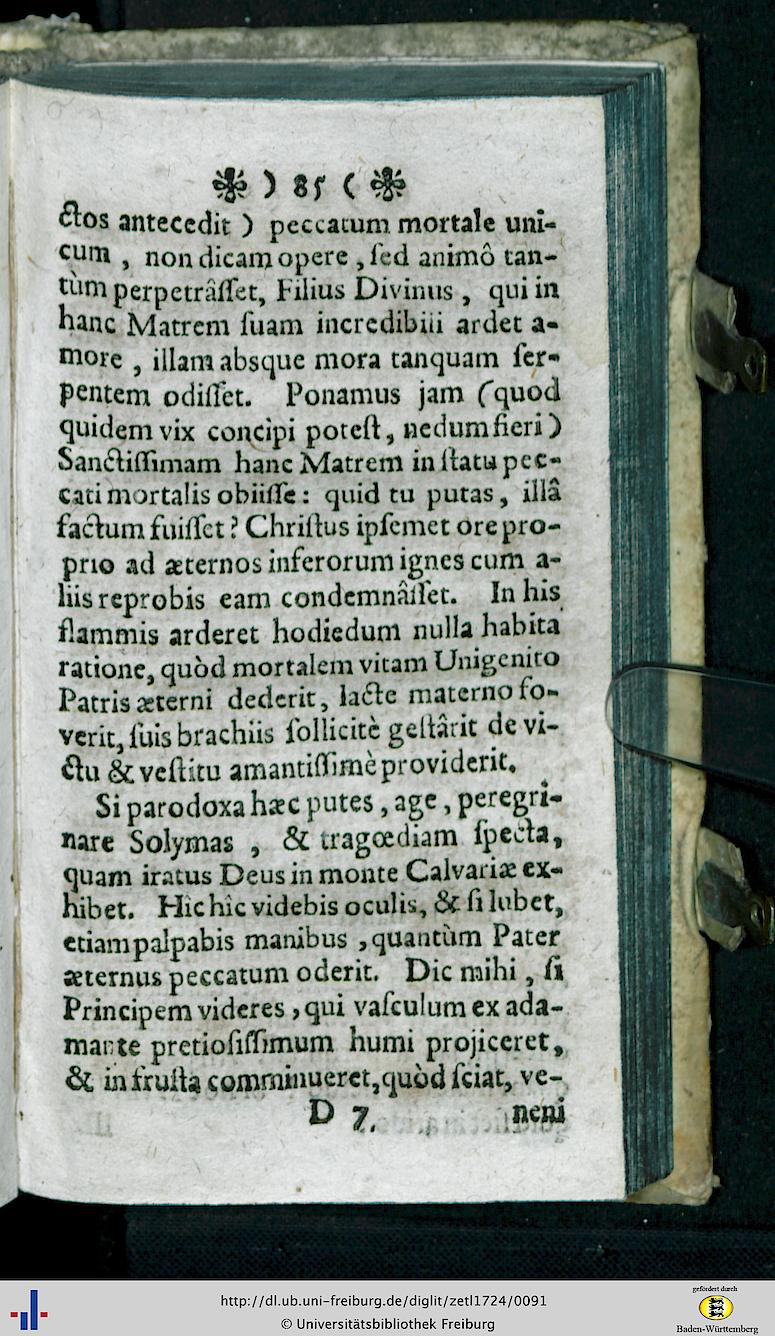 ) 85 (
ctos antecedit ) peccatum mortale uni-
cum , non dicam opere , ſed animô tan-
tùm perpetrâſſet, Filius Divinus , qui in
hanc Matrem ſuam incredibili ardet a-
more , illam absque mora tanquam ſer-
pentem odiſſet. Ponamus jam (quod
quidem vix concipi poteſt, nedum fieri )
Sanctiſſimam hanc Matrem in ſtatu pec-
cati mortalis obiiſſe : quid tu putas , illâ
factum fuiſſet ? Chriſtus ipſemet ore pro-
prio ad æternos inferorum ignes cum a-
liis reprobis eam condemnâſſet. In his
flammis arderet hodiedum nulla habita
ratione, quòd mortalem vitam Unigenito
Patris æterni dederit, lacte materno fo-
verit, ſuis brachiis ſollicitè geſtârit de vi-
ctu & veſtitu amantiſſimè providerit.
Si parodoxa hæc putes , age , peregri-
nare Solymas , & tragœdiam ſpecta,
quam iratus Deus in monte Calvariæ ex-
hibet. Hic hîc videbis oculis, & ſi lubet,
etiam palpabis manibus , quantùm Pater
æternus peccatum oderit. Dic mihi , ſi
Principem videres , qui vaſculum ex ada-
mante pretioſiſſimum humi projiceret,
& in fruſta comminueret, quòd ſciat, ve-
D 7. neni
http://dl.ub.uni-freiburg.de/diglit/zetl1724/0091
© Universitätsbibliothek Freiburg
gefördert durch
Baden-Württemberg